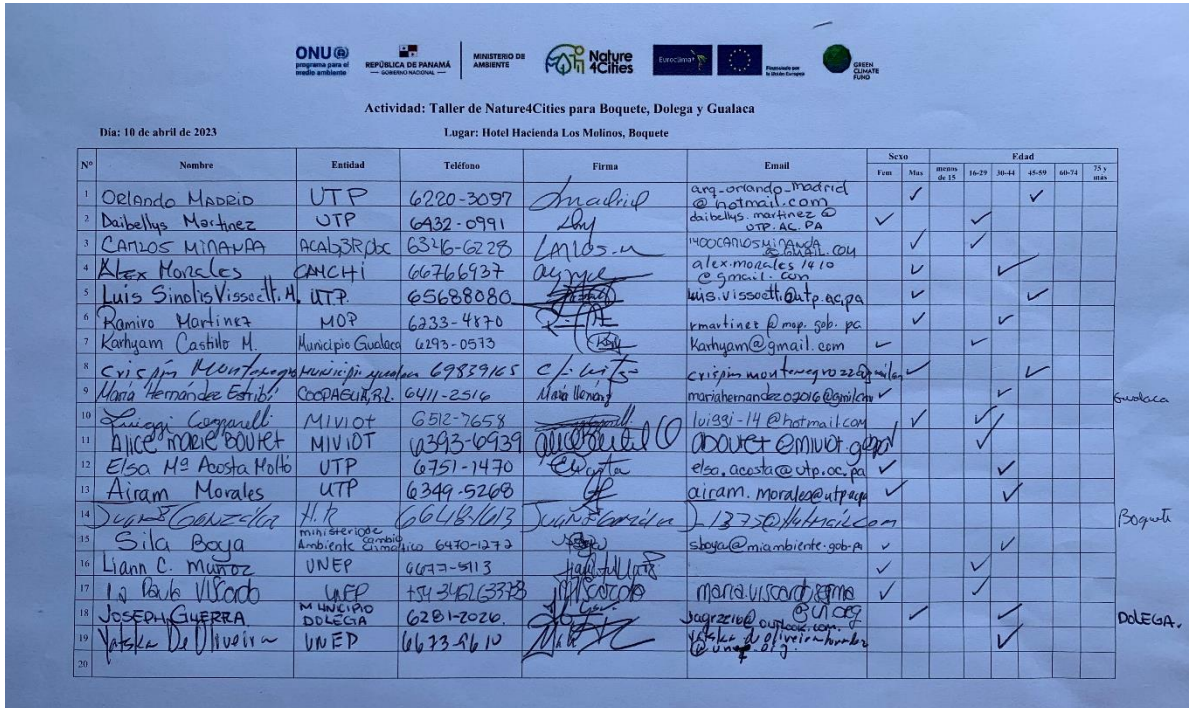 ONU programa para el medio ambiente
REPÚBLICA DE PANAMÁ — GOBIERNO NACIONAL —
MINISTERIO DE AMBIENTE
Nature 4Cities
Euroclima+
Financiado por la Unión Europea
GREEN CLIMATE FUND
Actividad: Taller de Nature4Cities para Boquete, Dolega y Gualaca
Día: 10 de abril de 2023 Lugar: Hotel Hacienda Los Molinos, Boquete
Nº Nombre Entidad Teléfono Firma Email Sexo Edad
Fem Mas menos de 15 16-29 30-44 45-59 60-74 75 y más
1 ORLANDO MADRID UTP 6220-3097 Madrid arq-orlando-madrid @hotmail.com
2 Daibellys Martinez UTP 6432-0991 daibellys.martinez@ UTP.AC.PA
3 CARLOS MIRANDA 6326-6228 CARLOS.M 1400CARLOSMIRANDA @GMAIL.COM
4 Alex Morales 66766937 alex.morales1410 @gmail.com
5 Luis UTP. 65688080 luis.vissoett@utp.ac.pa
6 Ramiro Martinez MOP 6233-4870 rmartinez@mop.gob.pa
7 Karhyam Castillo M. Municipio Gualaca 6293-0573 Karhyam@gmail.com
8 Crispin Montenegro Municipio Gualaca 69839165
9 María Hernández Estribí COOPAGUA, R.L. 6411-2516 María Hernánd Gualaca
10 Luiggi MIVIOT 6512-7658 luiggi-14@hotmail.com
11 Alice marie BOUTET MIVIOT 6393-6939 aboutet@miviot.gob
12 Elsa Mª Acosta Moltó UTP 6751-1470 EAcosta elsa.acosta@utp.ac.pa
13 Airam Morales UTP 6349-5268 airam.morales@utp.ac.pa
14 Juan González H.R 6648-1613 Juan González Boquete
15 Sila Boya ministerio de Ambiente cambio climatico 6470-1272 sboya@miambiente.gob.pa
16 Liann C. Muñoz UNEP 6677-5113
17 Viscardo UNEP
18 JOSEPH GUERRA MUNICIPIO DOLEGA 6281-2026. DOLEGA.
19 Yatska De Oliveira UNEP 6673-9610
20